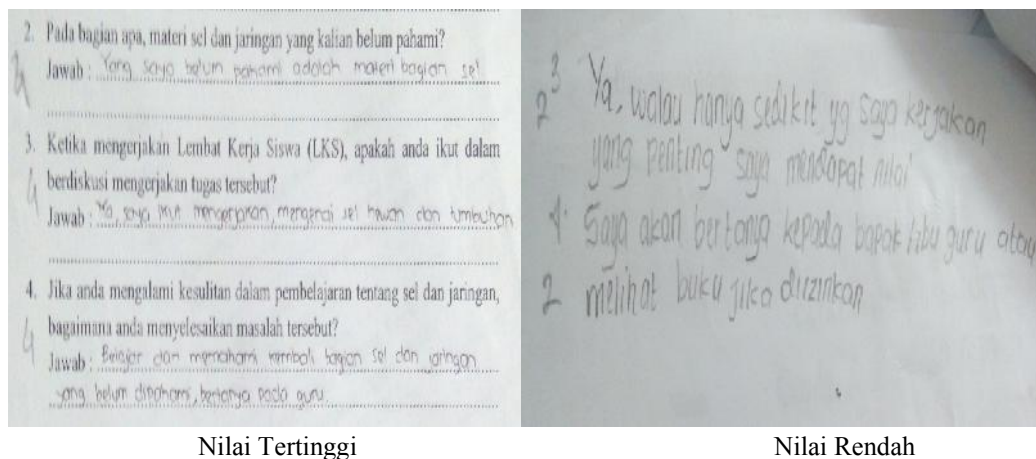 2. Pada bagian apa, materi sel dan jaringan yang kalian belum pahami?
Jawab : Yang saya belum pahami adalah materi bagian sel
3. Ketika mengerjakan Lembat Kerja Siswa (LKS), apakah anda ikut dalam
berdiskusi mengerjakan tugas tersebut?
4
Jawab : Ya, saya ikut mengerjakan, mengenai sel hewan dan tumbuhan
4. Jika anda mengalami kesulitan dalam pembelajaran tentang sel dan jaringan,
bagaimana anda menyelesaikan masalah tersebut?
4
Jawab : Belajar dan memahami kembali bagian sel dan jaringan
yang belum dipahami, bertanya pada guru.
3 Ya, walau hanya sedikit yg saya kerjakan
2
yang penting saya mendapat nilai
4. Saya akan bertanya kepada bapak/ibu guru atau
2 melihat buku jika diizinkan
Nilai Tertinggi
Nilai Rendah